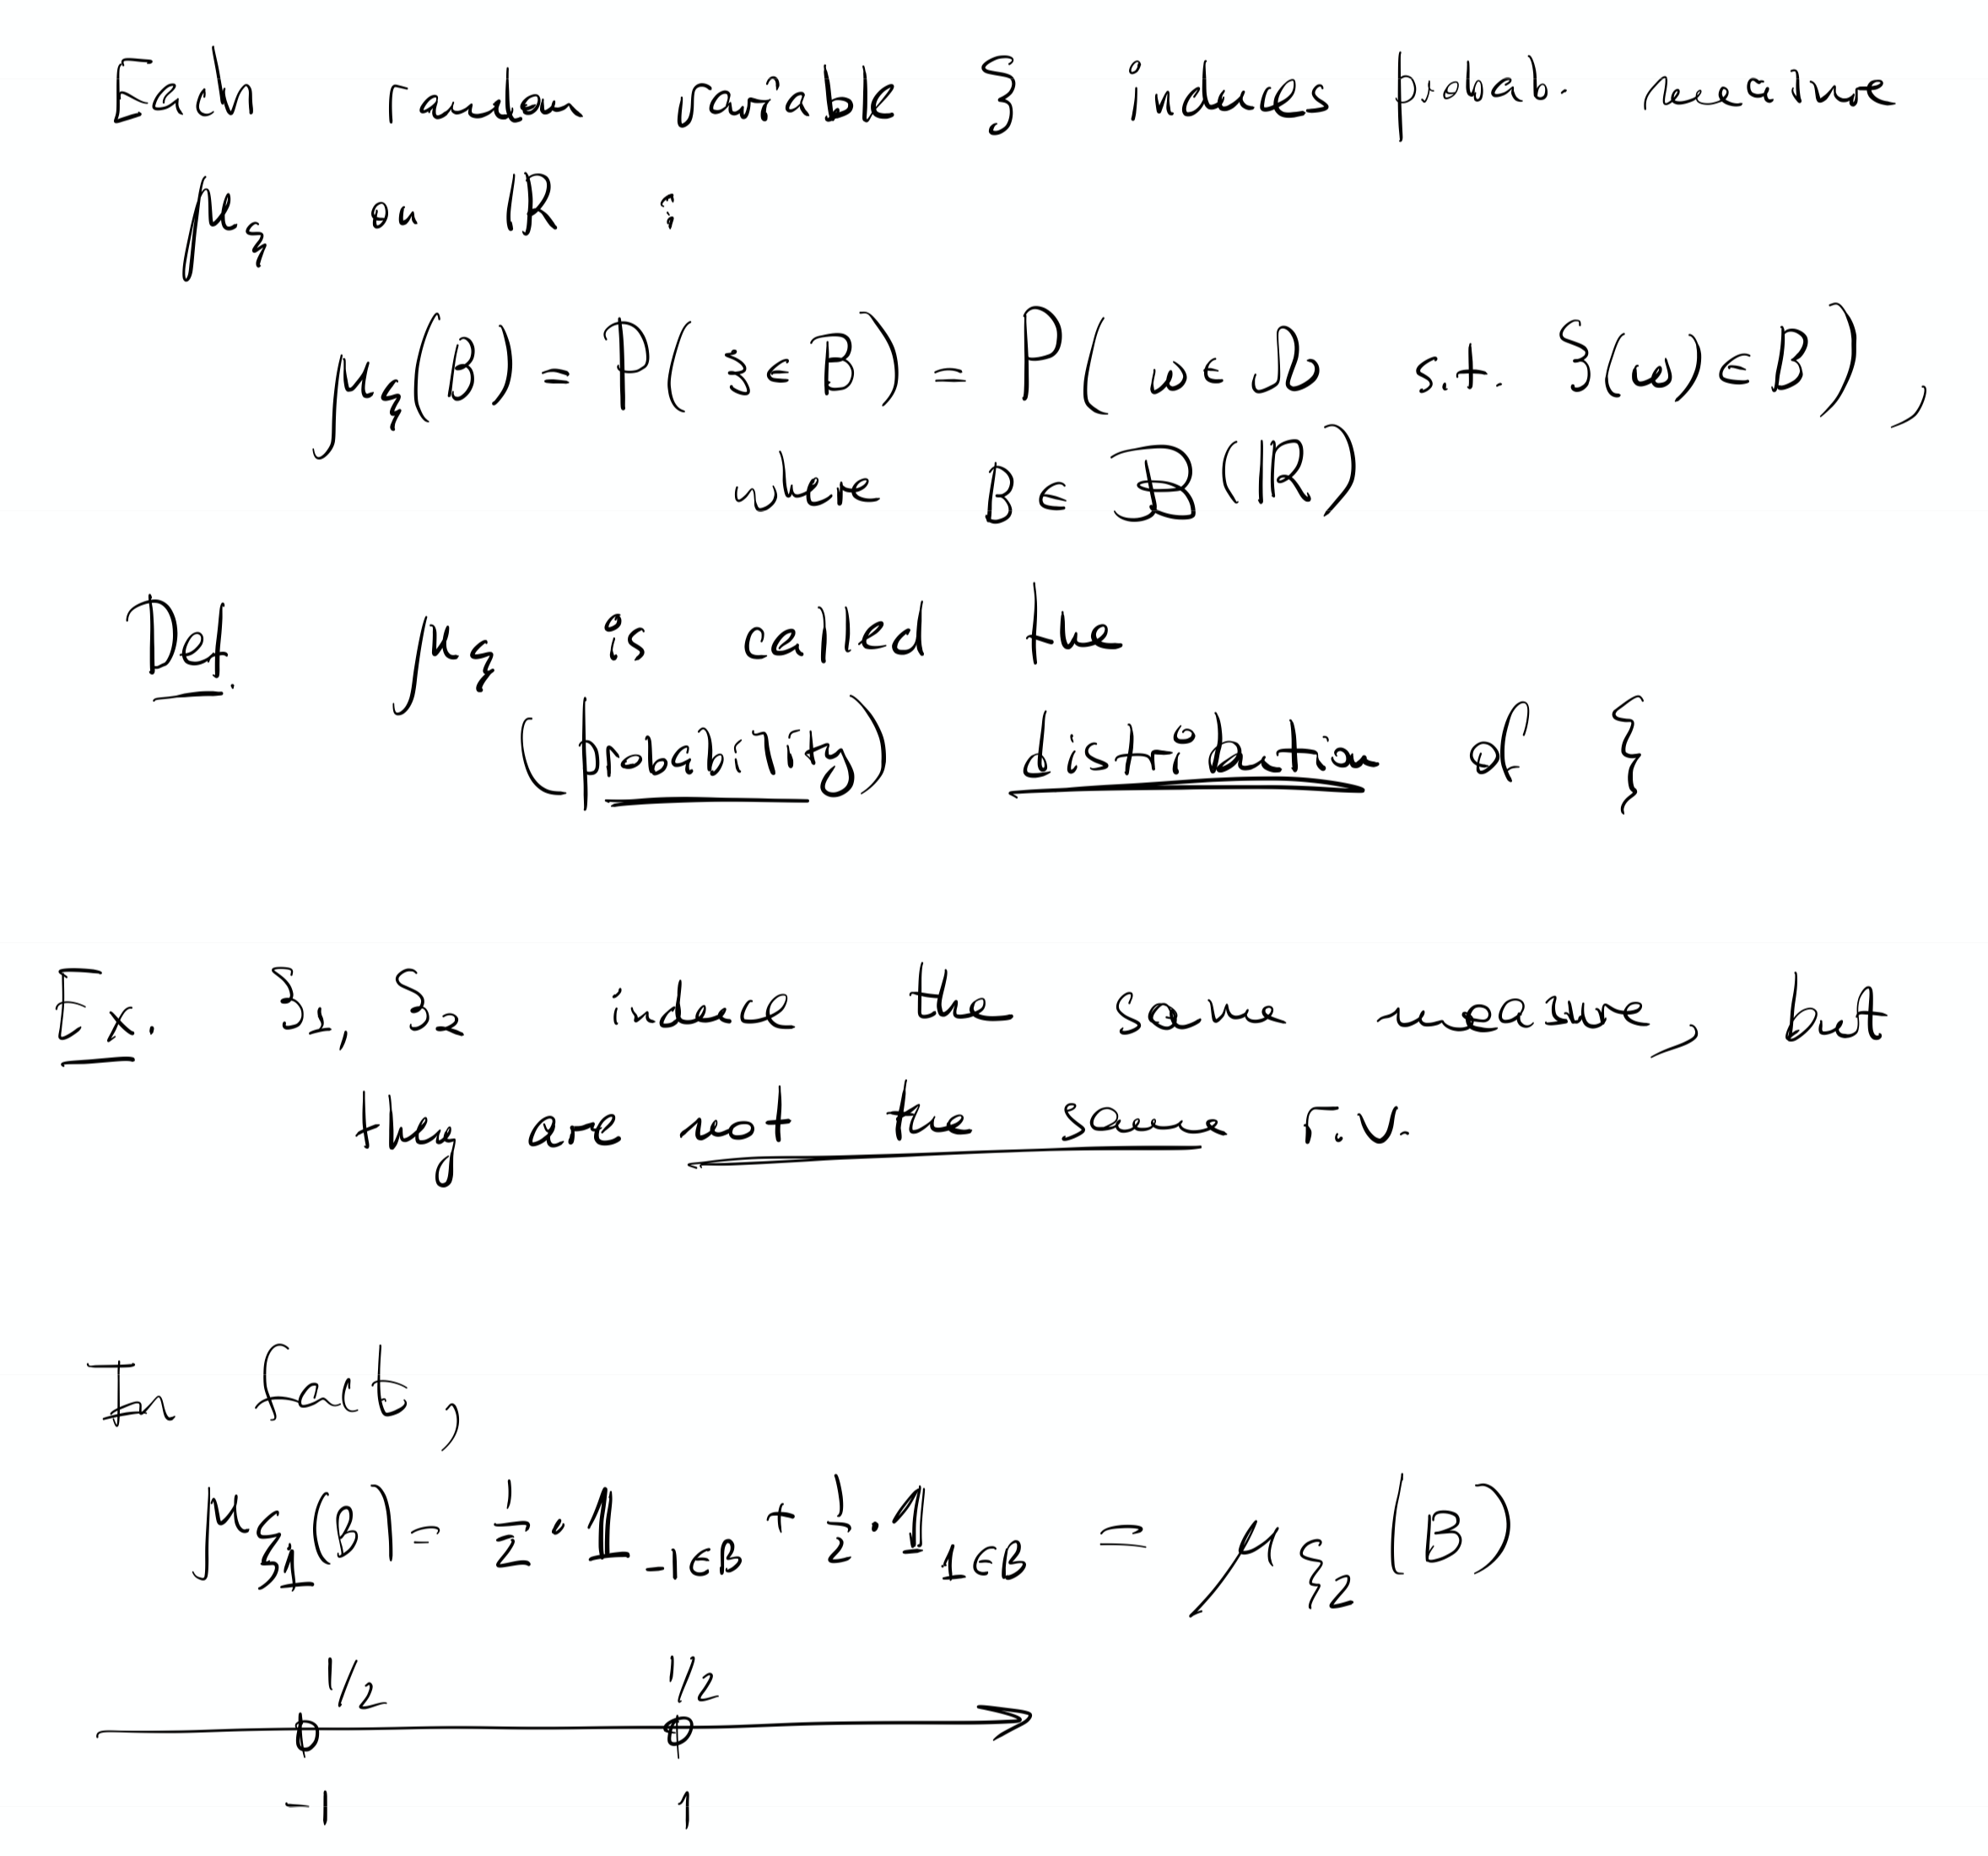 Each random variable ξ induces probab. measure
μ_ξ on ℝ :
μ_ξ(B) = P( ξ ∈ B ) = P( ω ∈ Ω s.t. ξ(ω) ∈ B ) ,
where B ∈ 𝔅(ℝ)
Def. μ_ξ is called the
(probability) distribution of ξ
Ex. ξ₁, ξ₂ induce the same measure, but
they are not the same r.v.
In fact,
μ_ξ₁(B) = 1/2 · 𝟙_{-1∈B} + 1/2 · 𝟙_{1∈B} = μ_ξ₂(B)
1/2 1/2
-1 1